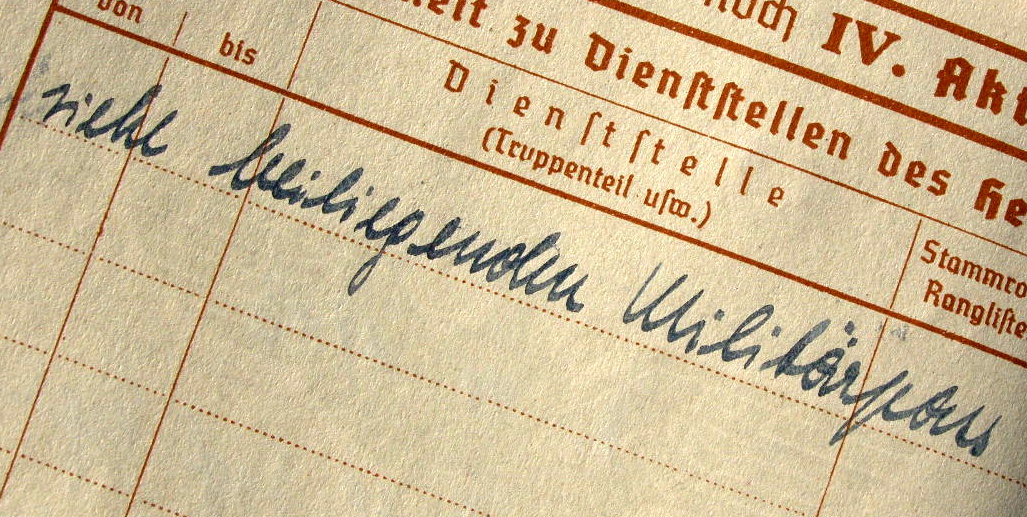 noch IV. Akt
zu Dienststellen des He
von
bis
Dienststelle
(Truppenteil usw.)
Stammro
Rangliste
siehe beiliegenden Militärpass